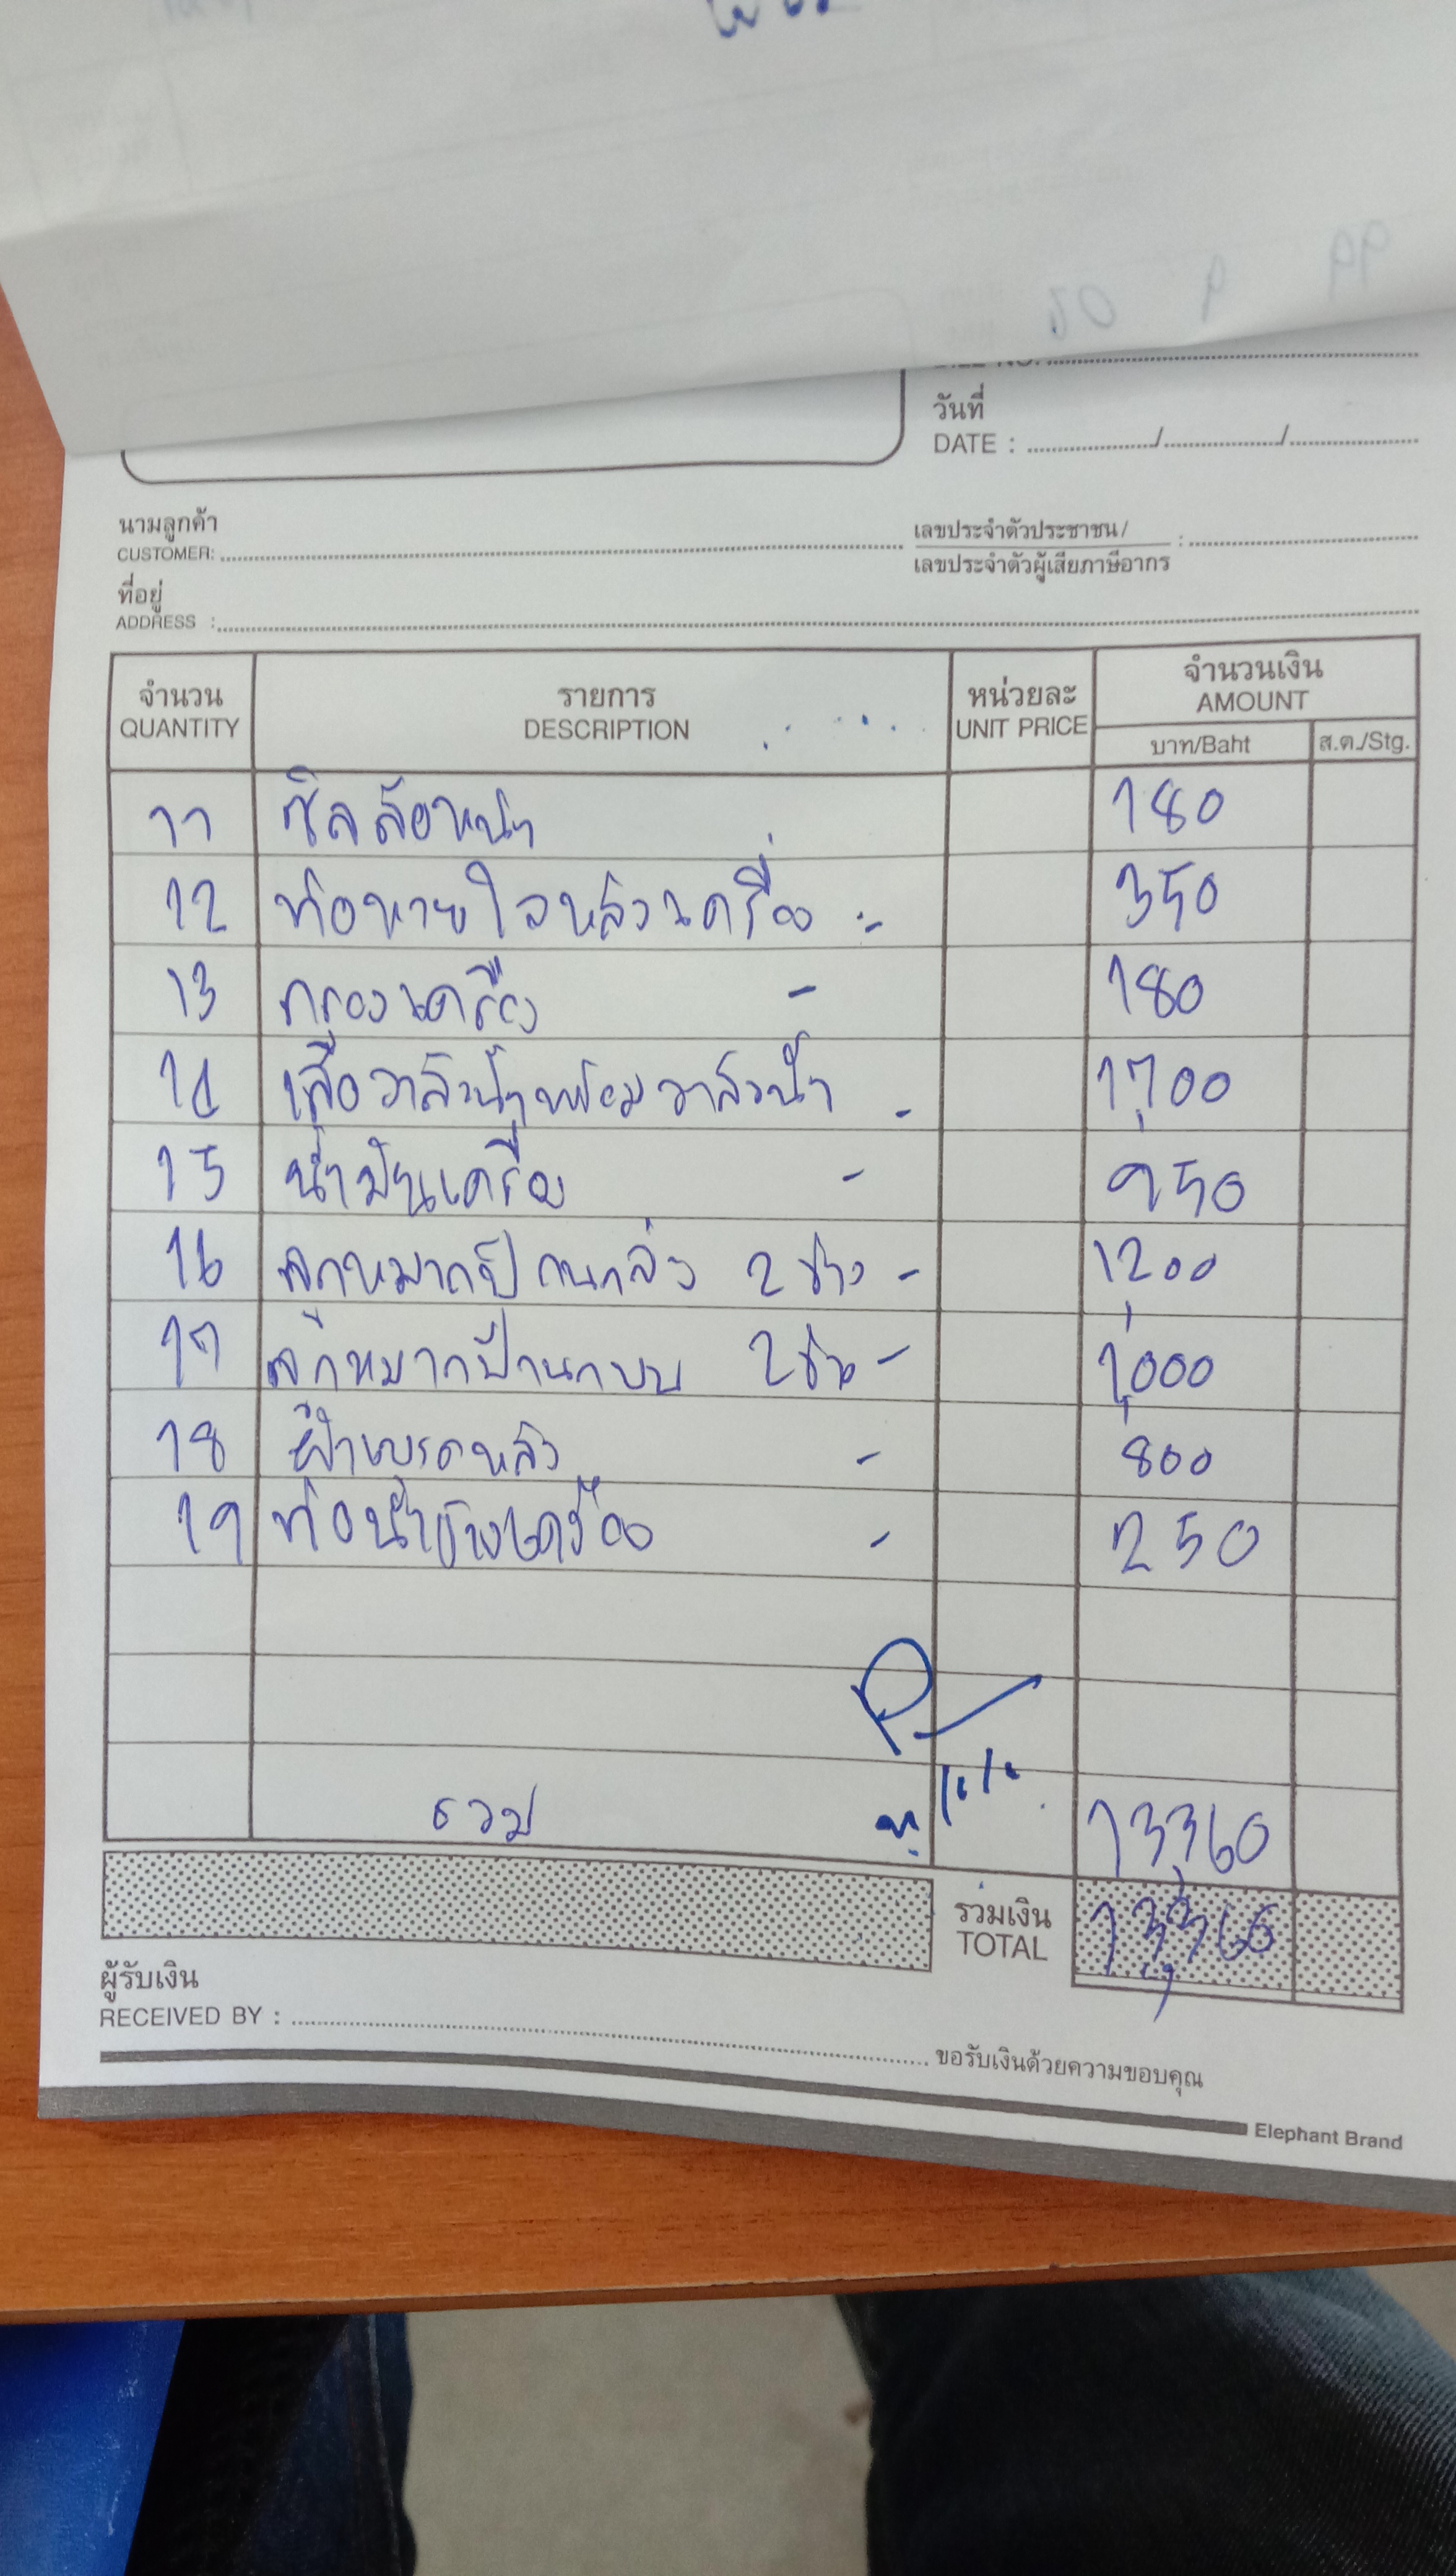 วันที่
DATE : ............/............/............
นามลูกค้า
CUSTOMER:
เลขประจำตัวประชาชน/
เลขประจำตัวผู้เสียภาษีอากร :
ที่อยู่
ADDRESS :
จำนวน รายการ หน่วยละ จำนวนเงิน
QUANTITY DESCRIPTION UNIT PRICE AMOUNT
บาท/Baht ส.ต./Stg.
11 ซีลล้อหน้า 180
12 ท่อหายใจหลังเครื่อง - 350
13 กรองเครื่อง - 180
14 เสื้อวาล์วน้ำพร้อมวาล์วน้ำ - 1,700
15 น้ำมันเครื่อง - 950
16 ลูกหมากปีกนกล่าง 2 ข้าง - 1,200
17 ลูกหมากปีกนกบน 2 ข้าง - 1,000
18 ผ้าเบรคหลัง - 800
19 ท่อน้ำข้างเครื่อง - 250
รวม 13,360
รวมเงิน
TOTAL 13,360
ผู้รับเงิน
RECEIVED BY :
ขอรับเงินด้วยความขอบคุณ
Elephant Brand